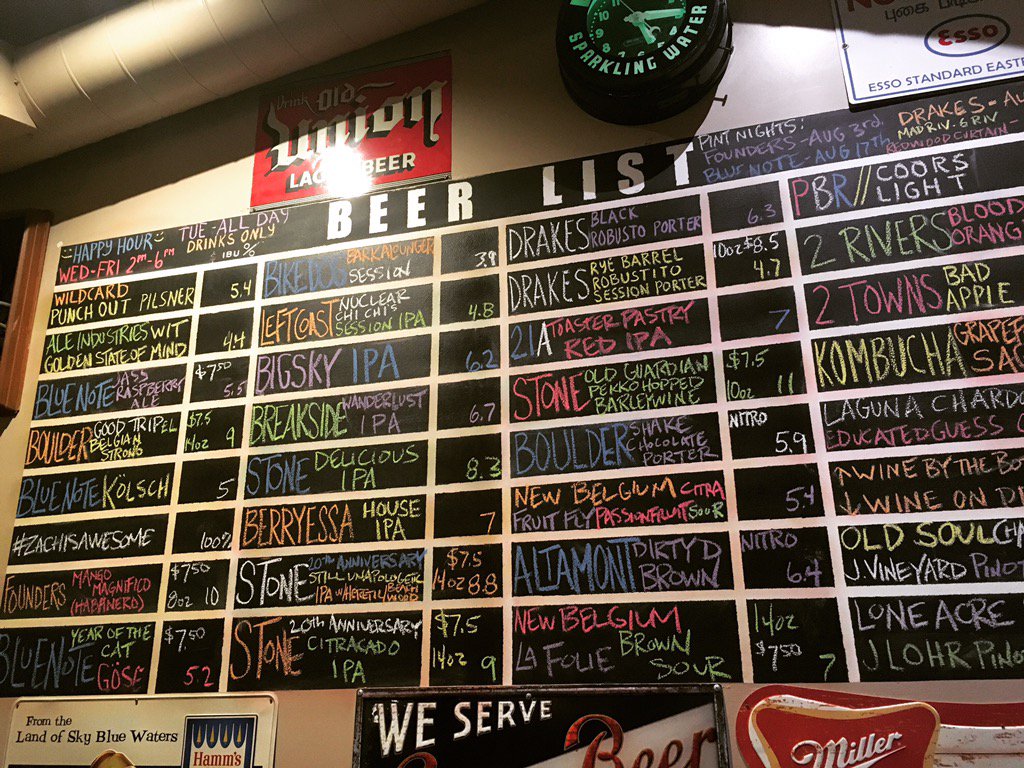 Drink Old
Union
LAGER BEER
SPARKLING WATER
புகை
ESSO
ESSO STANDARD EASTE
BEER LIST
PINT NIGHTS:
FOUNDERS - AUG 3rd
BLUE NOTE - AUG 17th
DRAKES - AU
MADRIV-G RIV
REDWOOD CURTAIN -
HAPPY HOUR
WED-FRI 2PM-6PM
TUE-ALL DAY
DRINKS ONLY
IBU %
WILDCARD
PUNCH OUT PILSNER
5.4
ALE INDUSTRIES WIT
GOLDEN STATE OF MIND
4.4
BLUE NOTE JASS
RASPBERRY
ALE
$7.50
5.5
BOULDER GOOD TRIPEL
BELGIAN
STRONG
$7.5
14oz 9
BLUE NOTE KÖLSCH
5
#ZACHISAWESOME
100%
FOUNDERS MANGO
MAGNIFICO
(HABAÑERO)
$7.50
8oz 10
BLUE NOTE YEAR OF THE
CAT
GOSE
$7.50
5.2
BIKEDOG BARKALOUNGER
SESSION
3.9
LEFT COAST NUCLEAR
CHI CHI'S
SESSION IPA
4.8
BIGSKY IPA
6.2
BREAKSIDE WANDERLUST
IPA
6.7
STONE DELICIOUS
IPA
8.3
BERRYESSA HOUSE
IPA
7
STONE 20TH ANNIVERSARY
STILL UNAPOLOGETIC
IPA
$7.5
14oz 8.8
STONE 20TH ANNIVERSARY
CITRACADO
IPA
$7.5
14oz 9
DRAKES BLACK
ROBUSTO PORTER
6.3
DRAKES RYE BARREL
ROBUSTITO
SESSION PORTER
10oz $8.5
4.7
21A TOASTER PASTRY
RED IPA
7
STONE OLD GUARDIAN
PEKKO HOPPED
BARLEYWINE
$7.5
10oz 11
BOULDER SHAKE
CHOCOLATE
PORTER
NITRO
5.9
NEW BELGIUM CITRA
FRUIT FLY PASSIONFRUIT SOUR
5.4
ALTAMONT DIRTY D
BROWN
NITRO
6.4
NEW BELGIUM
LA FOLIE BROWN
SOUR
14oz
$7.50 7
PBR // COORS
LIGHT
2 RIVERS BLOOD
ORANG
2 TOWNS BAD
APPLE
KOMBUCHA GRAPEF
SAC
LAGUNA CHARDO
EDUCATED GUESS C
↑WINE BY THE BO
↓WINE ON D
OLD SOUL CHA
J. VINEYARD PINOT
LONE ACRE
J LOHR PINO
From the
Land of Sky Blue Waters
Hamm's
WE SERVE
Beer
Miller